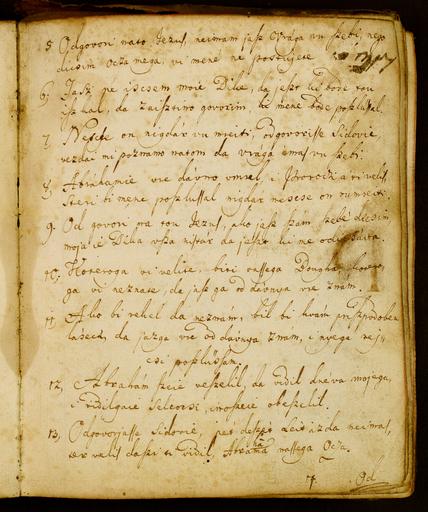 5. Odgovori nato Jezus, neimam jasz vrága vu szebi, nego
dicsim Ocza mega, vi mene ne postujete
6. Jasz ne iscsem moie Dike, da jeszt ki bode tou
iszkal, da zaisztino govorim, ki mene bode poszlusal.
7. Nescse on nigdár vu mreiti, Odgovorisse Sidovie,
vezdai mi poznamo natom da vrága imas vu szebi.
8. Abrahamie vre davno vmrel, i Prorocziá ti velis
steri ti mene poszlussal nigdár nescse on vumreiti.
9. Od govori na tou Jezus, ako jasz szám szebe dicsim,
moja ie Dika vsza nistar da jeszt ki me odicsáva.
10. Koteroga vi velite, biti vassega Bougha, kotero-
ga vi neznate, da jasz ga od dávnya vre znám.
11. Ako bi rekel da neznam, bil bi kvam priszpodoben
lásecz, da jaz ga vre od dávnya znám, i nyega rej-
csi poszlüsam.
12. Abrahám szeie veszelil, da vidil dnéva mojega,
i vidilgaie steleossi, inoszeie obeszelil.
13. Odgovorjasse Sidovie, pét deszét leit iezda neimas,
ter velis daszi ti vidil, Abrahama nassega Ocza.
7. Od